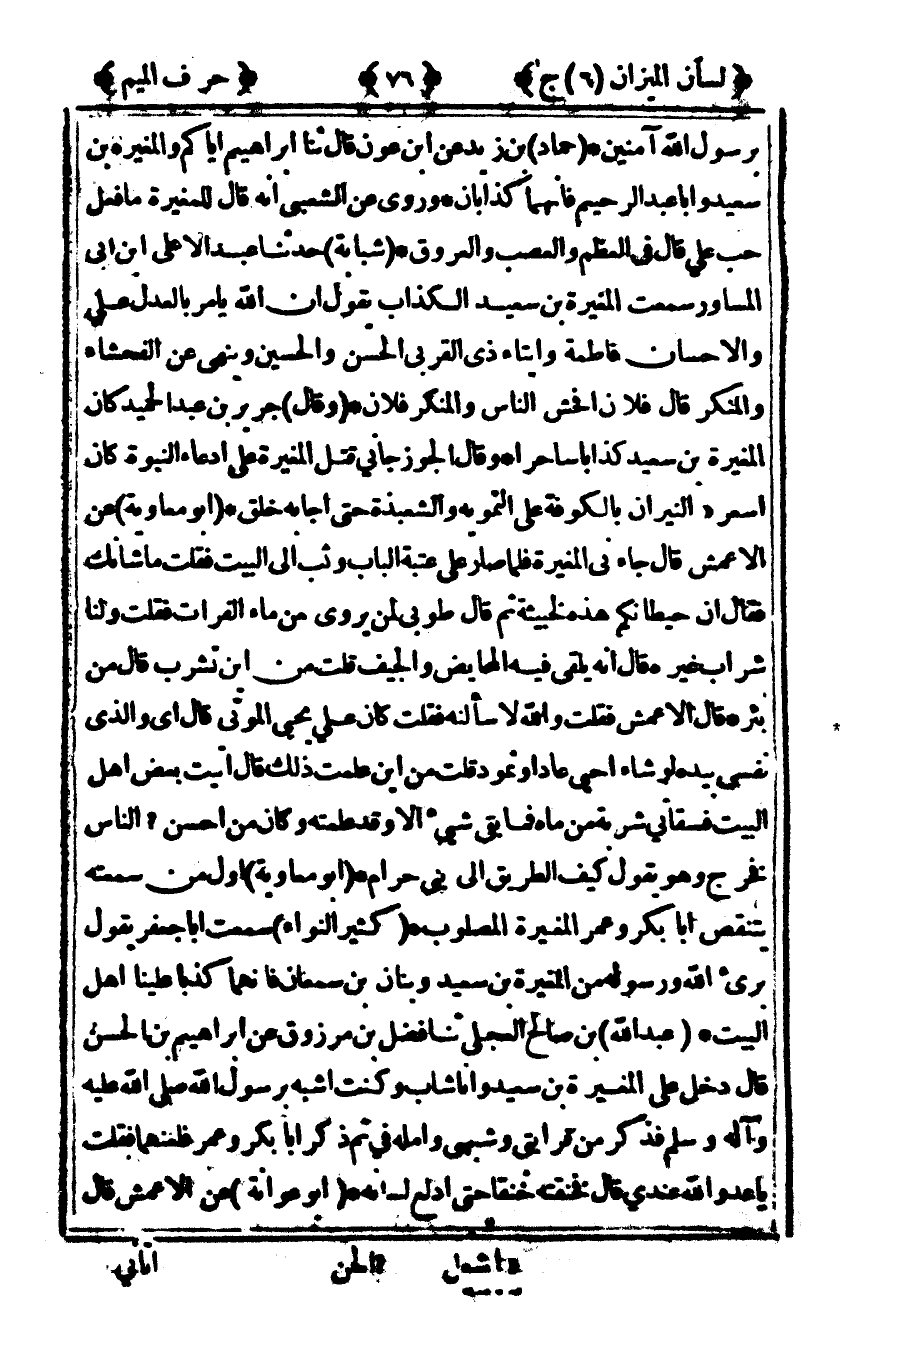 ﴿ لسان الميزان (٦) ج ﴾ ﴿ ٧٦ ﴾ ﴿ حرف الميم ﴾
برسول الله آمنين * (حماد) بن زيد عن ابن عون قال ثنا ابراهيم اياكم والمغيرة بن
سعيد وابا عبد الرحيم فانهما كذابان * وروى عن الشعبى انه قال للمغيرة ما فعل
حب علي قال فى العظم والعصب والعروق * (شبابة) حدثنا عبد الاعلى ابن ابى
المساور سمعت المغيرة بن سعيد الكذاب يقول ان الله يامر بالعدل علي
والاحسان فاطمة وايتاء ذى القربى الحسن والحسين وينهى عن الفحشاء
والمنكر قال فلان افحش الناس والمنكر فلان * (وقال) جرير بن عبد الحميد كان
المغيرة بن سعيد كذابا ساحرا * وقال الجوزجاني قتل المغيرة على ادعاء النبوة كان
اسعر ء النيران بالكوفة على التمويه والشعبذة حتى اجابه خلق * (ابو معاوية) عن
الاعمش قال جاء نى المغيرة فلما صار على عتبة الباب وثب الى البيت فقلت ما شانك
فقال ان حيطانكم هذه لخبيثة ثم قال طوبى لمن يروى من ماء الفرات فقلت ولنا
شراب غيره قال انه يلقى فيه المحايض والجيف قلت من اين تشرب قال من
بئر * قال الاعمش فقلت والله لاسألنه فقلت كان علي يحيى الموتى قال اى والذى
نفسى بيده لو شاء احيى عادا وثمود قلت من اين علمت ذلك قال اتيت بعض اهل
البيت فسقاني شربة من ماء فما بقى شيء الا وقد علمته وكان من احسن ٢ الناس
فخرج وهو يقول كيف الطريق الى بنى حرام * (ابو معاوية) اول من سمعته
يتنقص ابا بكر وعمر المغيرة المصلوب * (كثير النواء) سمعت ابا جعفر يقول
برىء الله ورسوله من المغيرة بن سعيد وبنان بن سمعان فانهما كذبا علينا اهل
البيت * (عبد الله) بن صالح العجلي ثنا فضل بن مرزوق عن ابراهيم بن الحسن
قال دخل علي المغيرة بن سعيد وانا شاب وكنت اشبه برسول الله صلى الله عليه
وآله وسلم فذكر من قرابتى وشبهى وامله في ثم ذكر ابا بكر وعمر فلعنهما فقلت
يا عدو الله عندي قال فخنقته خنقا حتى ادلع لسانه * (ابو عوانة) عن الاعمش قال
اشعل ٢ الحن اتاني